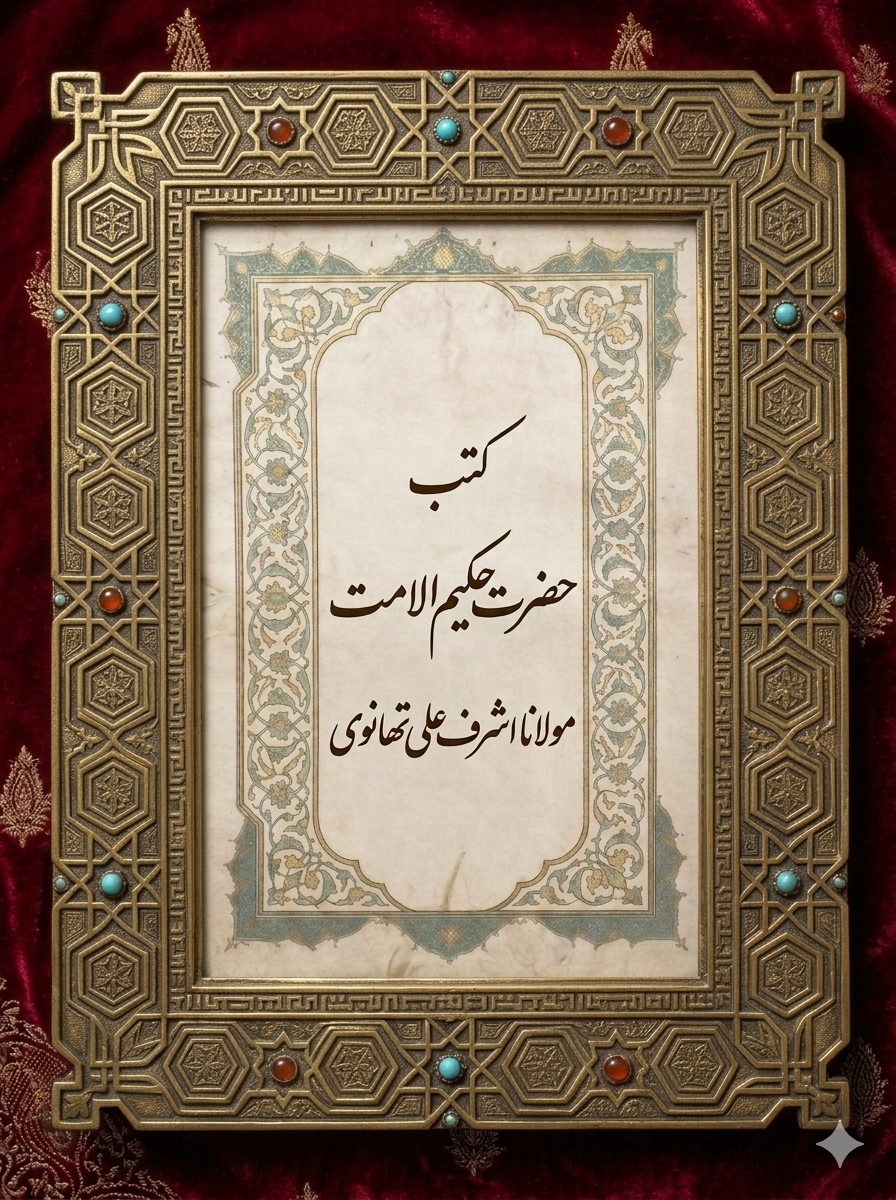 کتب
حضرت حکیم الامت
مولانا اشرف علی تھانوی